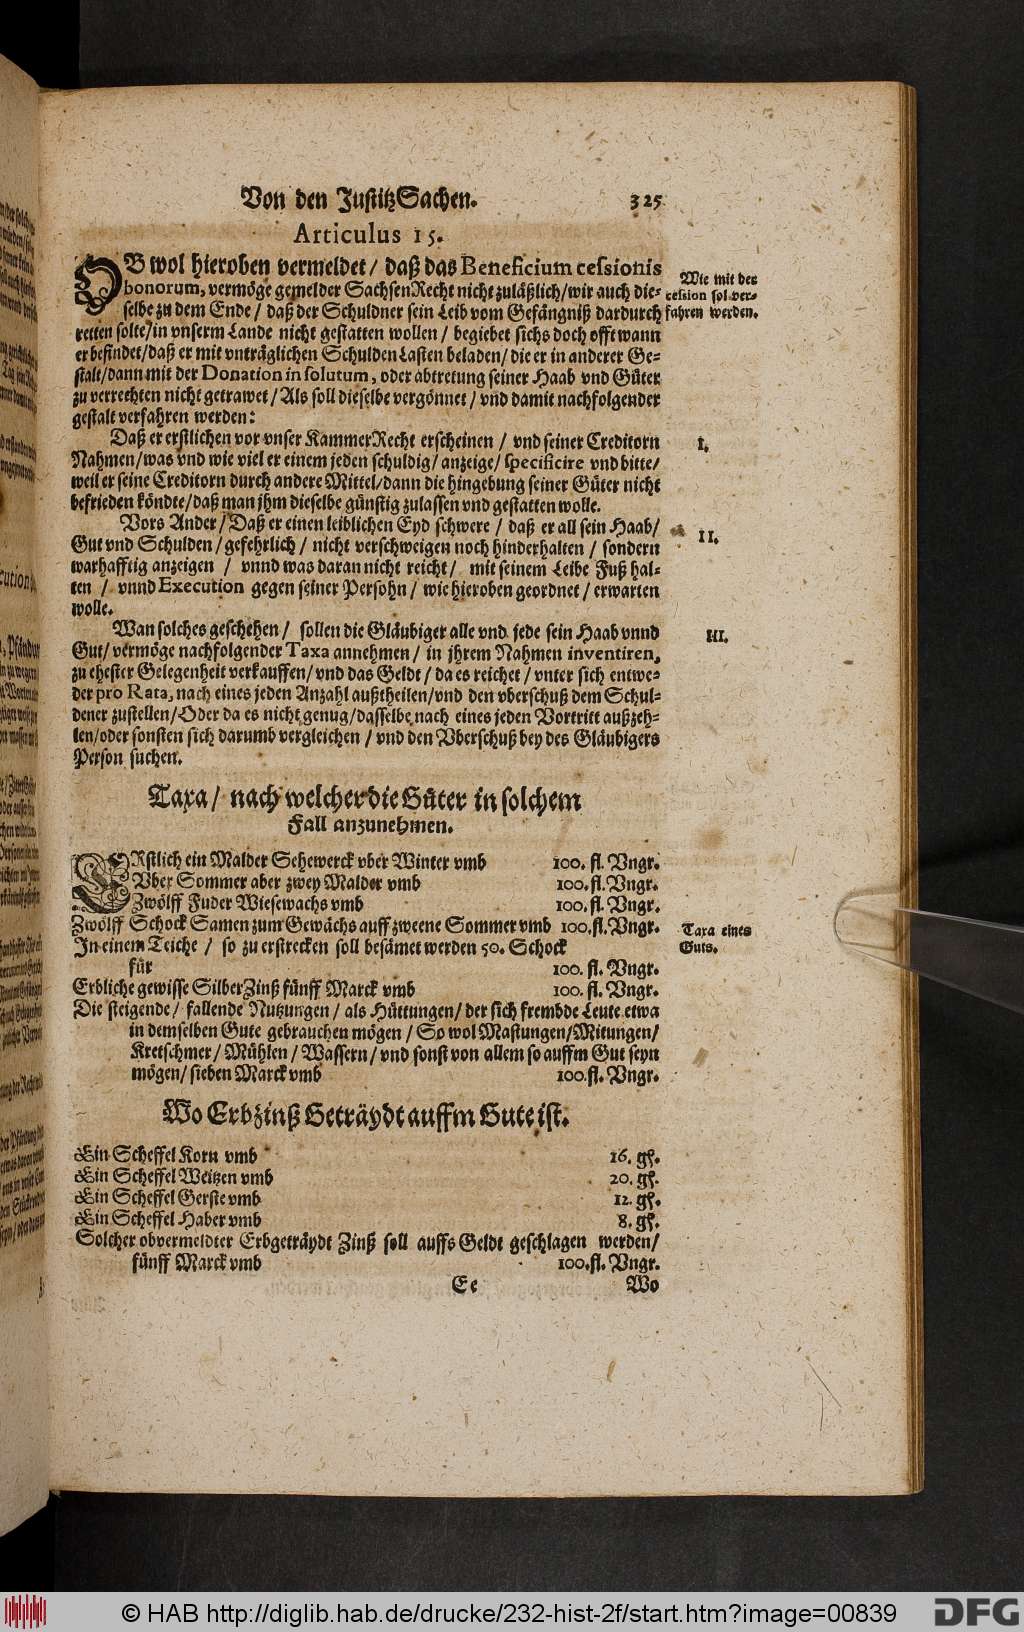 Von den JustitzSachen. 325
Articulus 15.
OB wol hieroben vermeldet / daß das Beneficium cessionis
bonorum, vermöge gemelder SachsenRecht nicht zuläßlich / wir auch die-
selbe zu dem Ende / daß der Schuldner sein Leib vom Gefängniß dardurch
retten solte / in vnserm Lande nicht gestatten wollen / begiebet sichs doch offt wann
er befindet / daß er mit vnträglichen Schulden Lasten beladen / die er in anderer Ge-
stalt / dann mit der Donation in solutum, oder abtretung seiner Haab vnd Güter
zu verrechten nicht getrawet / Als soll dieselbe vergönnet / vnd damit nachfolgender
gestalt verfahren werden:
Wie mit der
cession sol ver-
fahren werden.
Daß er erstlichen vor vnser KammerRecht erscheinen / vnd seiner Creditorn
Nahmen / was vnd wie viel er einem jeden schuldig / anzeige / specificire vnd bitte /
weil er seine Creditorn durch andere Mittel / dann die hingebung seiner Güter nicht
befrieden köndte / daß man jhm dieselbe günstig zulassen vnd gestatten wolle.
I.
Vors Ander / Daß er einen leiblichen Eyd schwere / daß er all sein Haab /
Gut vnd Schulden / gefehrlich / nicht verschweigen noch hinderhalten / sondern
warhafftig anzeigen / vnnd was daran nicht reicht / mit seinem Leibe Fuß hal-
ten / vnnd Execution gegen seiner Persohn / wie hieroben geordnet / erwarten
wolle.
II.
Wan solches geschehen / sollen die Gläubiger alle vnd jede sein Haab vnnd
Gut / vermöge nachfolgender Taxa annehmen / in jhrem Nahmen inventiren,
zu ehester Gelegenheit verkauffen / vnd das Geldt / da es reichet / vnter sich entwe-
der pro Rata, nach eines jeden Anzahl außtheilen / vnd den vberschuß dem Schul-
dener zustellen / Oder da es nicht genug / dasselbe nach eines jeden Vortritt außzeh-
len / oder sonsten sich darumb vergleichen / vnd den Vberschuß bey des Gläubigers
Person suchen.
III.
Taxa / nach welcher die Güter in solchem
Fall anzunehmen.
ERstlich ein Malder Sehewerck vber Winter vmb 100. fl. Vngr.
Vber Sommer aber zwey Malder vmb 100. fl. Vngr.
Zwölff Fuder Wiesewachs vmb 100. fl. Vngr.
Zwölff Schock Samen zum Gewächs auff zweene Sommer vmb 100. fl. Vngr.
In einem Teiche / so zu erstrecken soll besämet werden 50. Schock
für 100. fl. Vngr.
Erbliche gewisse SilberZinß fünff Marck vmb 100. fl. Vngr.
Die steigende / fallende Nutzungen / als Hüttungen / der sich frembde Leute etwa
in demselben Gute gebrauchen mögen / So wol Mastungen / Mitungen /
Kretschmer / Mühlen / Wassern / vnd sonst von allem so auffm Gut seyn
mögen / sieben Marck vmb 100. fl. Vngr.
Taxa eines
Guts.
Wo Erbzinß Geträydt auffm Gute ist.
Ein Scheffel Korn vmb 16. gß.
Ein Scheffel Weitzen vmb 20. gß.
Ein Scheffel Gerste vmb 12. gß.
Ein Scheffel Haber vmb 8. gß.
Solcher obvermeldter Erbgeträydt Zinß soll auffs Geldt geschlagen werden /
fünff Marck vmb 100. fl. Vngr.
Ee Wo
© HAB http://diglib.hab.de/drucke/232-hist-2f/start.htm?image=00839
DFG